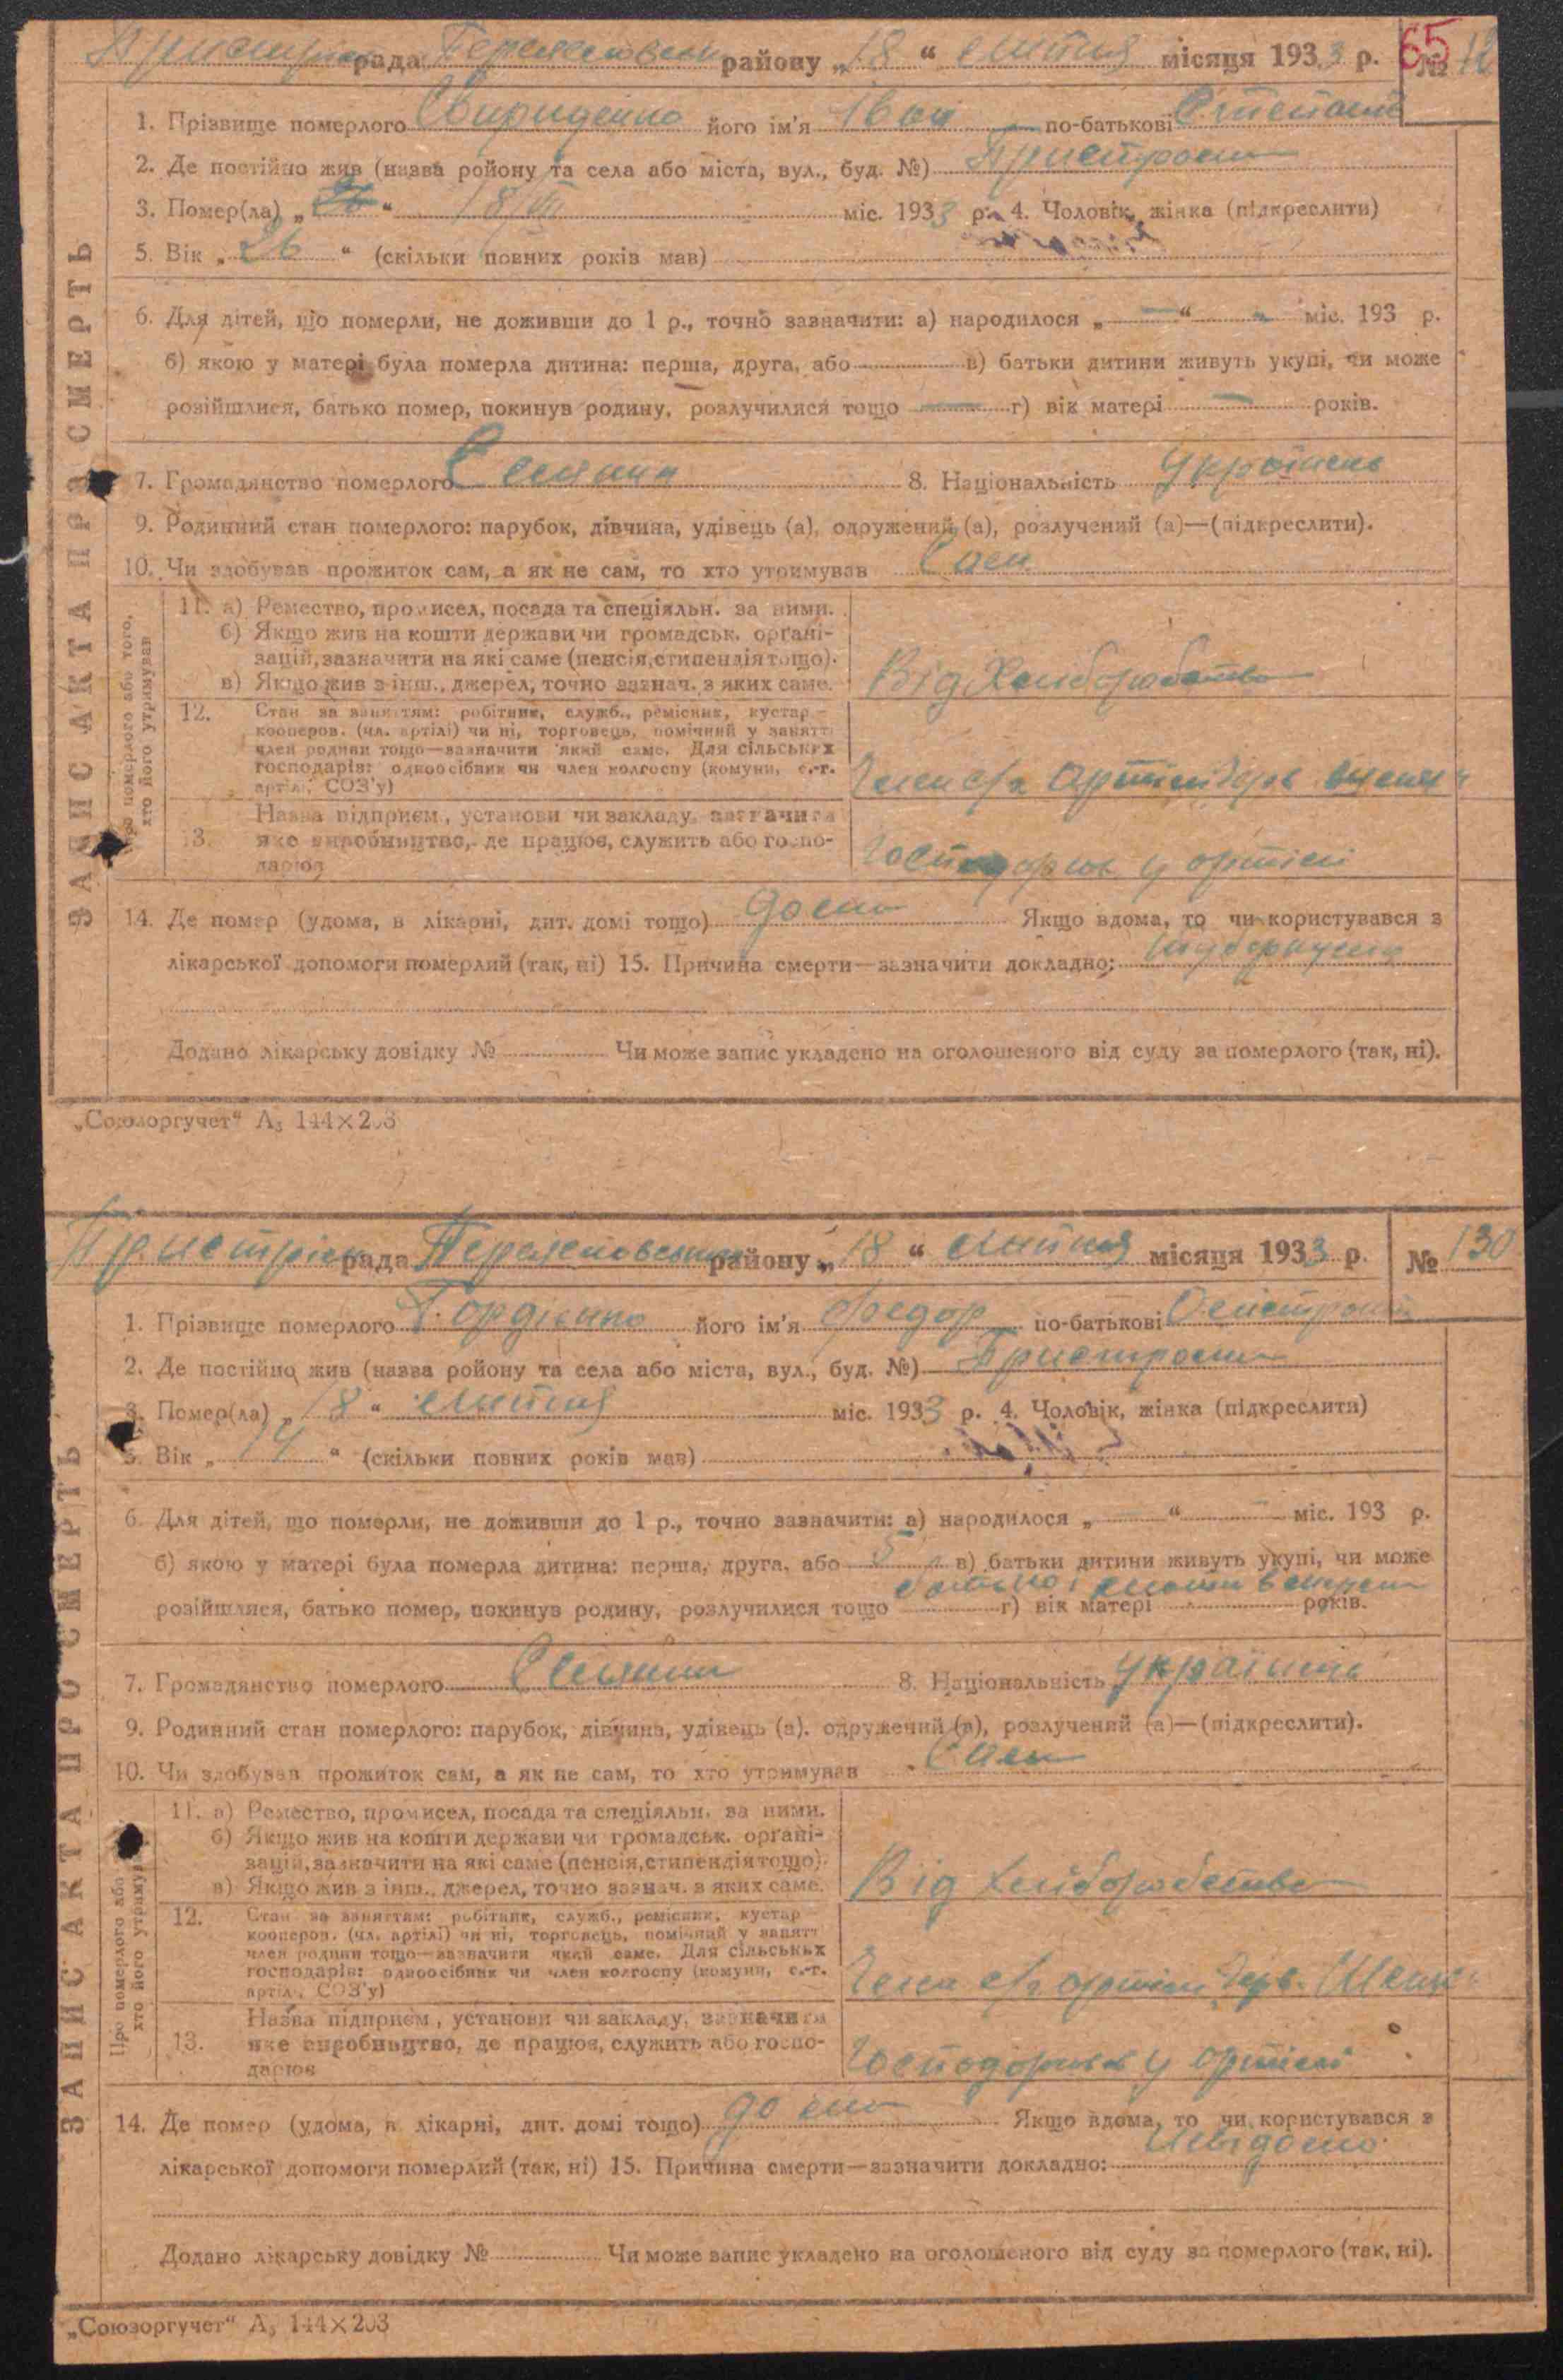 рада району „18“ липня місяця 1933 р. 65 №
1. Прізвище померлого Свириденко його ім'я Іван по-батькові Степанів
2. Де постійно жив (назва ройону та села або міста, вул., буд. №) Пристроми
3. Помер(ла) „ “ 18/VII міс. 1933 р. 4. Чоловік, жінка (підкреслити)
5. Вік „26“ (скільки повних років мав)
6. Для дітей, що померли, не доживши до 1 р., точно зазначити: а) народилося „—“ — міс. 193 р.
б) якою у матері була померла дитина: перша, друга, або в) батьки дитини живуть укупі, чи може
розійшлися, батько помер, покинув родину, розлучилися тощо — г) вік матері — років.
7. Громадянство померлого Селянин 8. Національність Українець
9. Родинний стан померлого: парубок, дівчина, удівець (а), одружений (а), розлучений (а)—(підкреслити).
10. Чи здобував прожиток сам, а як не сам, то хто утримував Сам
ЗАПИС АКТА ПРО СМЕРТЬ
Про померлого або того, хто його утримував
11. а) Ремество, промисел, посада та спеціяльн. за ними.
б) Якщо жив на кошти держави чи громадськ. органі-
зацій, зазначити на які саме (пенсія, стипендія тощо).
в) Якщо жив з інш., джерел, точно зазнач. з яких саме.
Від Хліборобства
12. Стан за заняттям: робітник, служб., ремісник, кустар—
кооперов. (чл. артілі) чи ні, торговець, помічний у занятті
член родини тощо—зазначити який саме. Для сільських
господарів: одноосібник чи член колгоспу (комуни, с.-г.
артілі, СОЗ'у)
Член с/г артілі
13. Назва підприєм., установи чи закладу, зазначити
яке виробництво, де працює, служить або госпо-
дарює
Господарює у артілі
14. Де помер (удома, в лікарні, дит. домі тощо) дома Якщо вдома, то чи користувався з
лікарської допомоги померлий (так, ні) 15. Причина смерти—зазначити докладно:
Додано лікарську довідку № Чи може запис укладено на оголошеного від суду за померлого (так, ні).
„Союзоргучет“ А₅ 144×203
рада району „18“ липня місяця 1933 р. № 130
1. Прізвище померлого Гордієнко його ім'я Федор по-батькові
2. Де постійно жив (назва ройону та села або міста, вул., буд. №) Пристроми
3. Помер(ла) „18“ липня міс. 1933 р. 4. Чоловік, жінка (підкреслити)
5. Вік „14“ (скільки повних років мав)
6. Для дітей, що померли, не доживши до 1 р., точно зазначити: а) народилося „—“ — міс. 193 р.
б) якою у матері була померла дитина: перша, друга, або 5 в) батьки дитини живуть укупі, чи може
батько і мати вмерли
розійшлися, батько помер, покинув родину, розлучилися тощо г) вік матері років.
7. Громадянство померлого Селянин 8. Національність Українець
9. Родинний стан померлого: парубок, дівчина, удівець (а). одружений (а), розлучений (а)—(підкреслити).
10. Чи здобував прожиток сам, а як не сам, то хто утримував Сам
ЗАПИС АКТА ПРО СМЕРТЬ
Про померлого або хто його утримував
11. а) Ремество, промисел, посада та спеціяльн. за ними.
б) Якщо жив на кошти держави чи громадськ. органі-
зацій, зазначити на які саме (пенсія, стипендія тощо).
в) Якщо жив з інш., джерел, точно зазнач. з яких саме.
Від хліборобства
12. Стан за заняттям: робітник, служб., ремісник, кустар—
кооперов. (чл. артілі) чи ні, торговець, помічний у занятті
член родини тощо—зазначити який саме. Для сільських
господарів: одноосібник чи член колгоспу (комуни, с.-г.
артілі, СОЗ'у)
Член с/г артілі
13. Назва підприєм., установи чи закладу, зазначити
яке виробництво, де працює, служить або госпо-
дарює
Господарює у артілі
14. Де помер (удома, в лікарні, дит. домі тощо) дома Якщо вдома, то чи користувався з
лікарської допомоги померлий (так, ні) 15. Причина смерти—зазначити докладно: Невідомо
Додано лікарську довідку № Чи може запис укладено на оголошеного від суду за померлого (так, ні).
„Союзоргучет“ А₅ 144×203